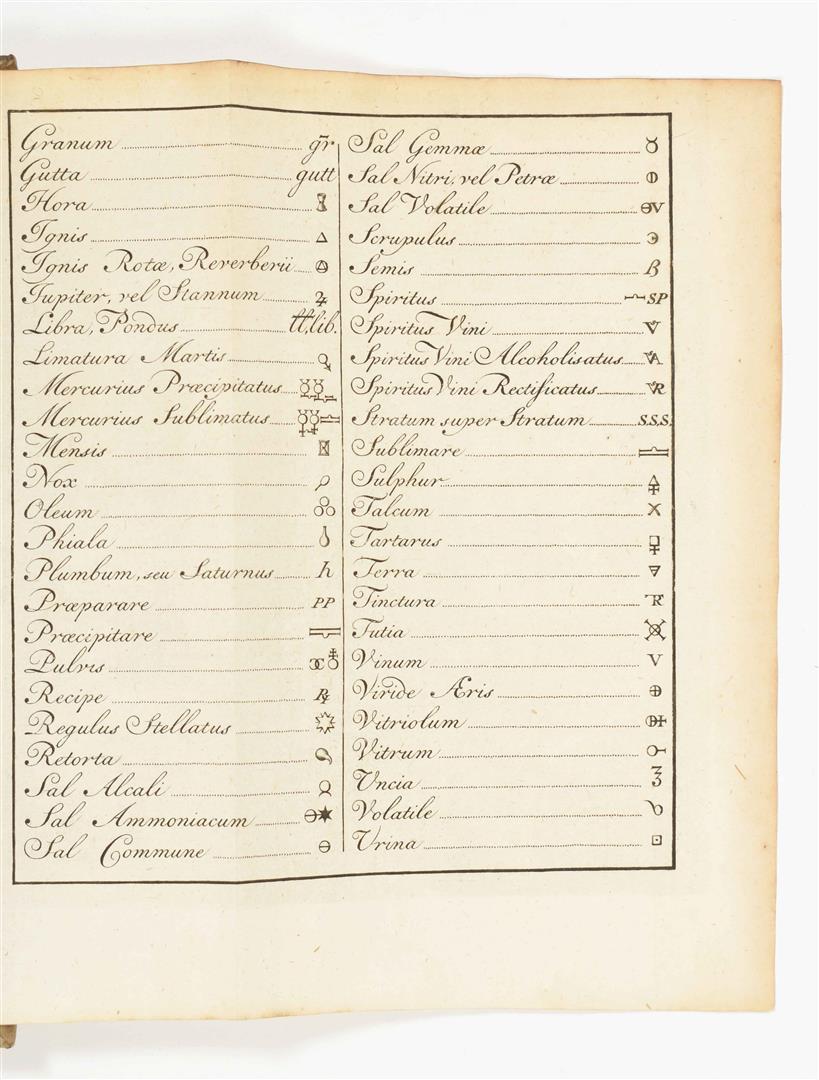 Granum gr̃
Gutta gutt
Hora
Ignis 🜂
Ignis Rotæ, Reverberii
Jupiter, vel Stannum ♃
Libra, Pondus lib.
Limatura Martis
Mercurius Præcipitatus
Mercurius Sublimatus
Mensis
Nox
Oleum
Phiala
Plumbum, seu Saturnus h
Præparare PP
Præcipitare
Pulvis
Recipe ℞
Regulus Stellatus
Retorta
Sal Alcali
Sal Ammoniacum
Sal Commune 🜔
Sal Gemmæ ♉
Sal Nitri, vel Petræ
Sal Volatile
Scrupulus
Semis ß
Spiritus SP
Spiritus Vini
Spiritus Vini Alcoholisatus
Spiritus Vini Rectificatus
Stratum super Stratum S.S.S.
Sublimare
Sulphur 🜍
Talcum X
Tartarus
Terra 🜃
Tinctura
Tutia
Vinum V
Viride Æris ⊕
Vitriolum
Vitrum
Uncia ℥
Volatile
Urina ⊡